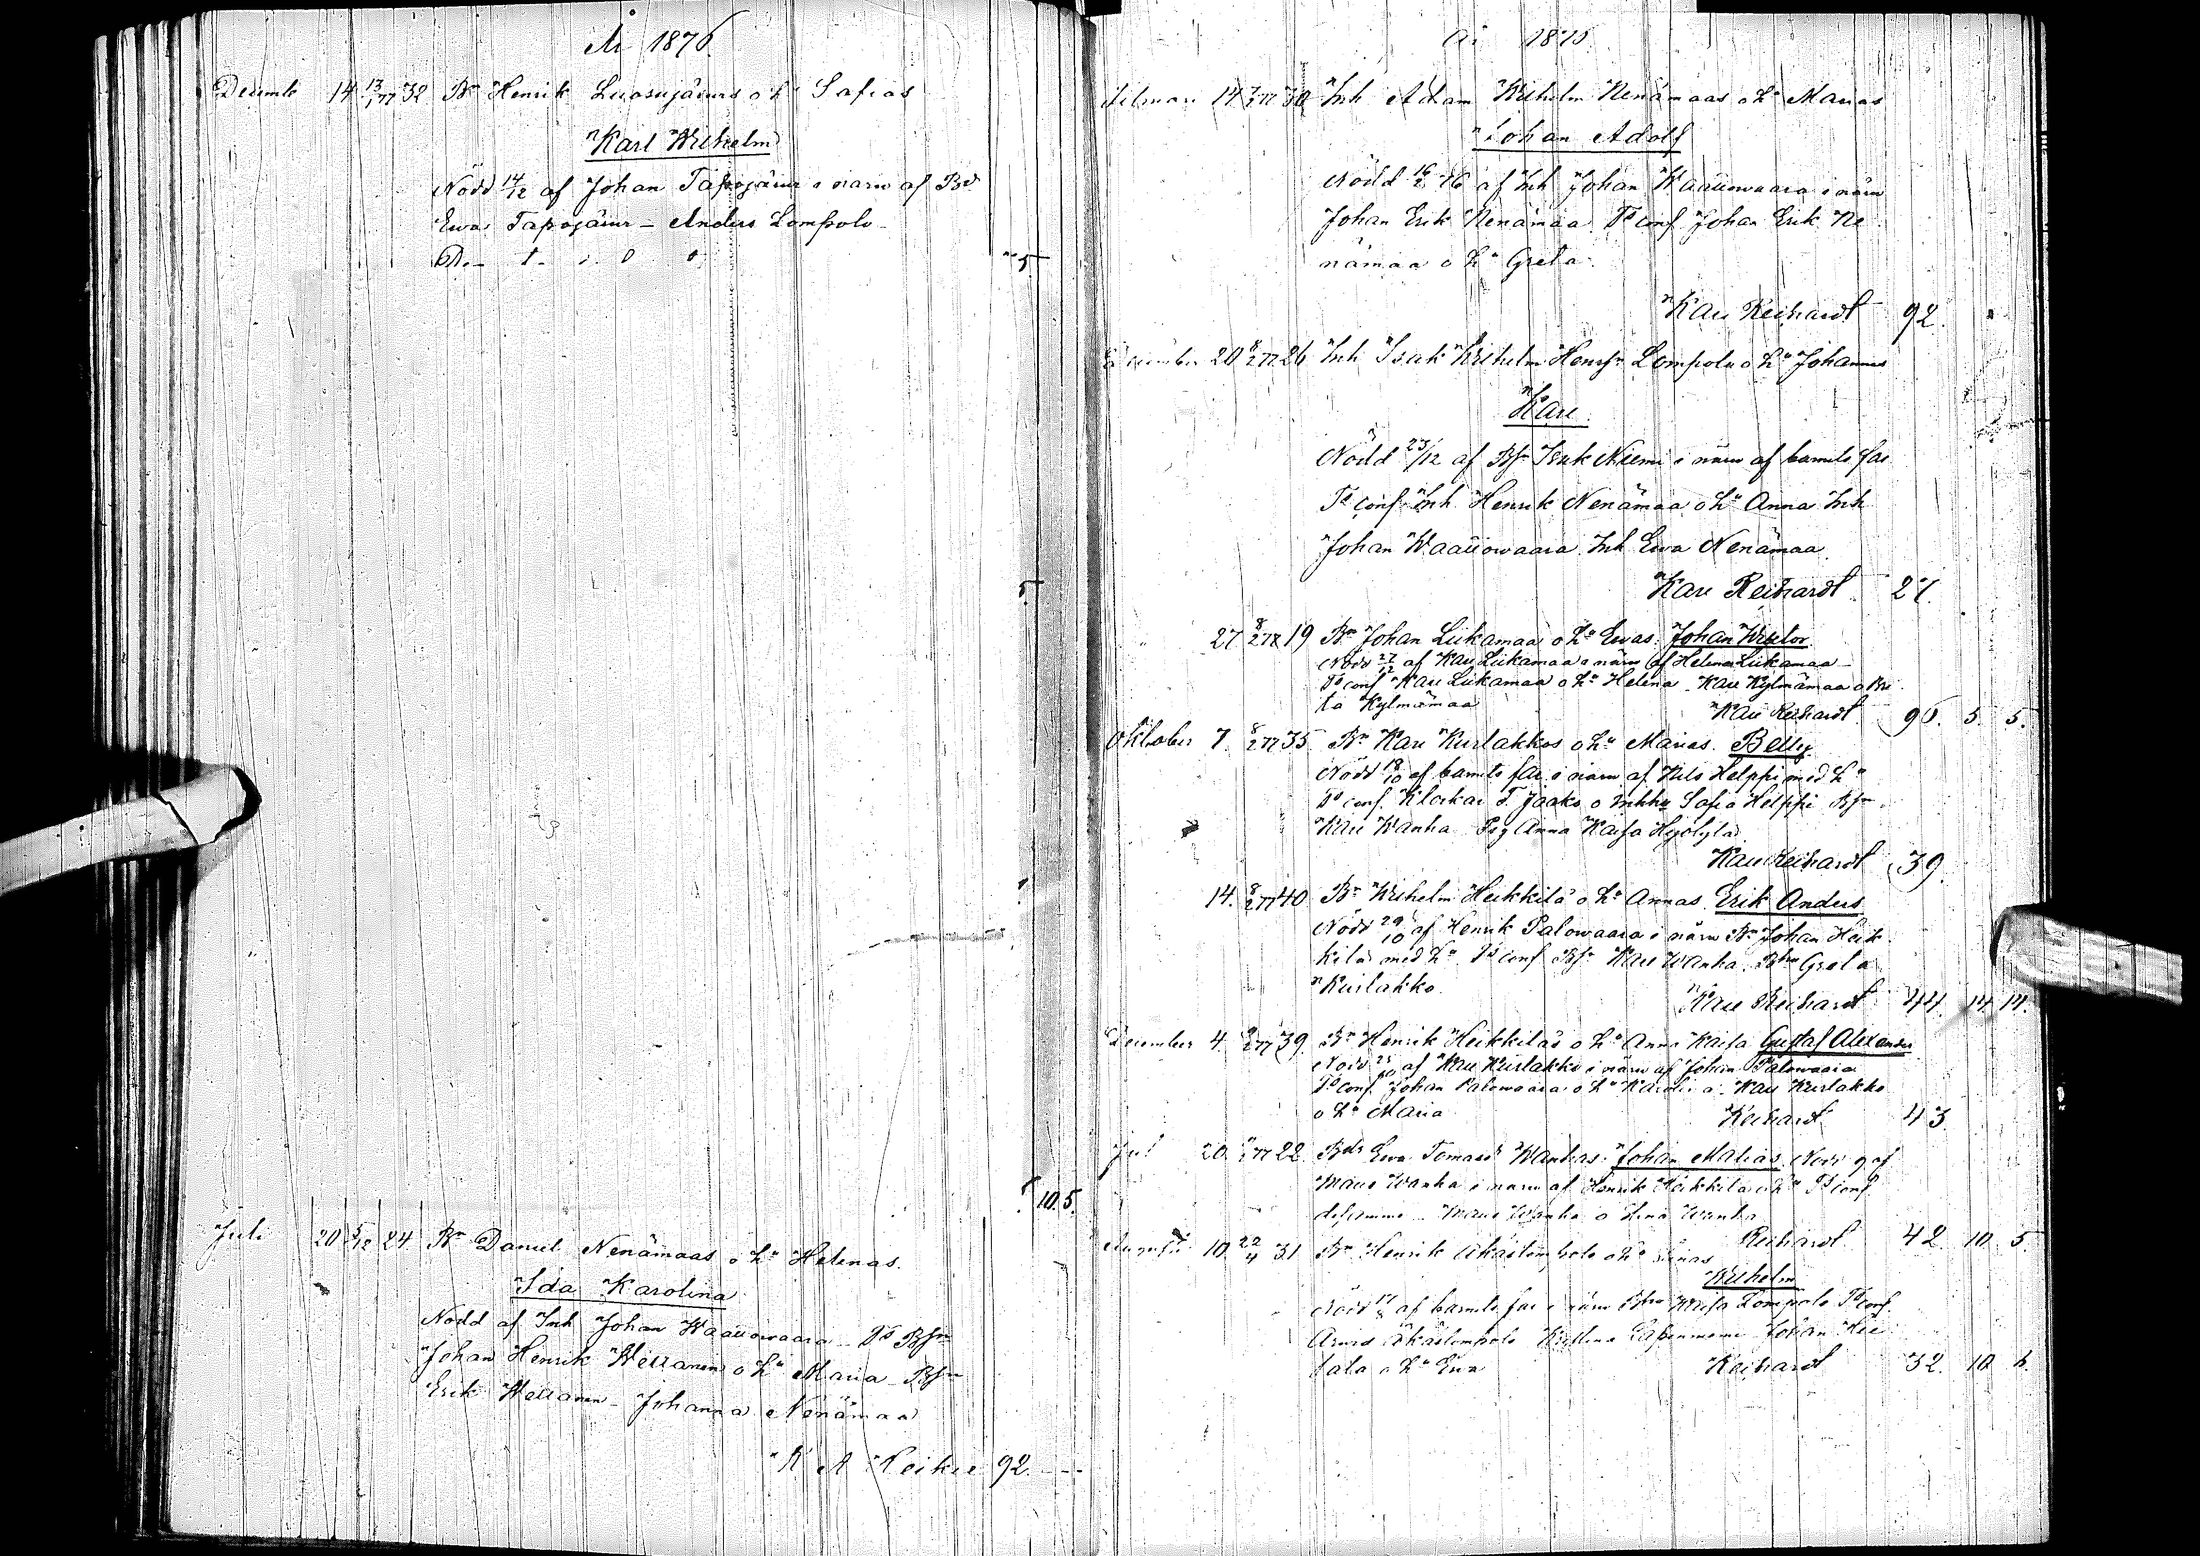 År 1876
Decemb 14 13/1 77 32 Bn Henrik Luosujärvis o hu Sofias
Karl Wilhelm
Nödd 14/12 af Johan Tapojärvi i närv af Bd
Ewa Tapojärvi - Anders Lompolo
5
5
10. 5.
Juli 20 5/12 24 Bn Daniel Nenämaas o hu Helenas
Ida Karolina
Nödd af Inh Johan Waattowaara Ts Bsn
Johan Henrik Wettanen o hu Maria Bsn
Erik Wettanen - Johanna Nenämaa
K A Heikel 92
År 1876
14 30 Inh Adam Wilhelm Nenämaas o hu Marias
Johan Adolf
Nödd 16/2 76 af Inh Johan Waattowaara i närv
Johan Erik Nenämaa Ts conf Johan Erik Ne
nämaa o hu Greta
Karl Reihardt 92
December 20 8/2 77 26 Inh Isak Wilhelm Henrsn Lompolo o hu Johannas
Karl
Nödd 23/12 af Bsn Isak Niemi i närv af barnets far
Ts conf Inh Henrik Nenämaa o hu Anna Inh
Johan Waattowaara Inh Ewa Nenämaa
Karl Reihardt 27
27 8/2 77 19 Bn Johan Liikamaas o hu Ewas Johan Wiktor
Nödd 27/12 af Karl Liikamaa i närv af Helena Liikamaa
Ts conf Karl Liikamaa o hu Helena Karl Kylmämaa o Bri
ta Kylmämaa
Karl Reihardt 96. 5. 5.
Oktober 7. 8/2 77 35 Bn Karl Kurtakkos o hu Marias. Betty
Nödd 18/10 af barnets far i närv af Nils Helppi med hu
Ts conf. Klockar F. Jaako o Inhhu Sofia Helppi Bsn
Karl Wanha Pig Anna Kaisa Hyölylä
Karl Reihardt 39.
14. 8/2 77 40 Bn Wilhelm Heikkilä o hu Annas Erik Anders
Nödd 29/10 af Henrik Palowaara i närv Bn Johan Heik
kilä med hu. Ts conf Bsn Karl Wanha. Bhu Greta
Kurtakko
Karl Reihardt 44. 14 14.
December 4. 8/2 77 39. Bn Henrik Heikkiläs o hu Anna Kaisa Gustaf Alexander
Nödd 25/10 af Karl Kurtakko i närv af Johan Palowaara
Ts conf. Johan Palowaara o hu Karolina Karl Kurtakko
o hu Maria
Reihardt 43
Jul 20. 77 22 Bdr Ewa Tomasdr Wanhas. Johan Matias Nödd 9 af
Maria Wanha i närv af Henrik Heikkilä o hu Ts conf
desamme Maria Wanha o Wanha
Reihardt 42 10 5.
Augusti 10. 22/4 31 Bn Henrik Äkäslompolo o hu
Wilhelm
Nödd 17/8 af barnets far i närv Bhu Lompolo Ts conf.
Äkäslompolo Johan Hie
tala o hu Ewa
Reihardt 32. 10